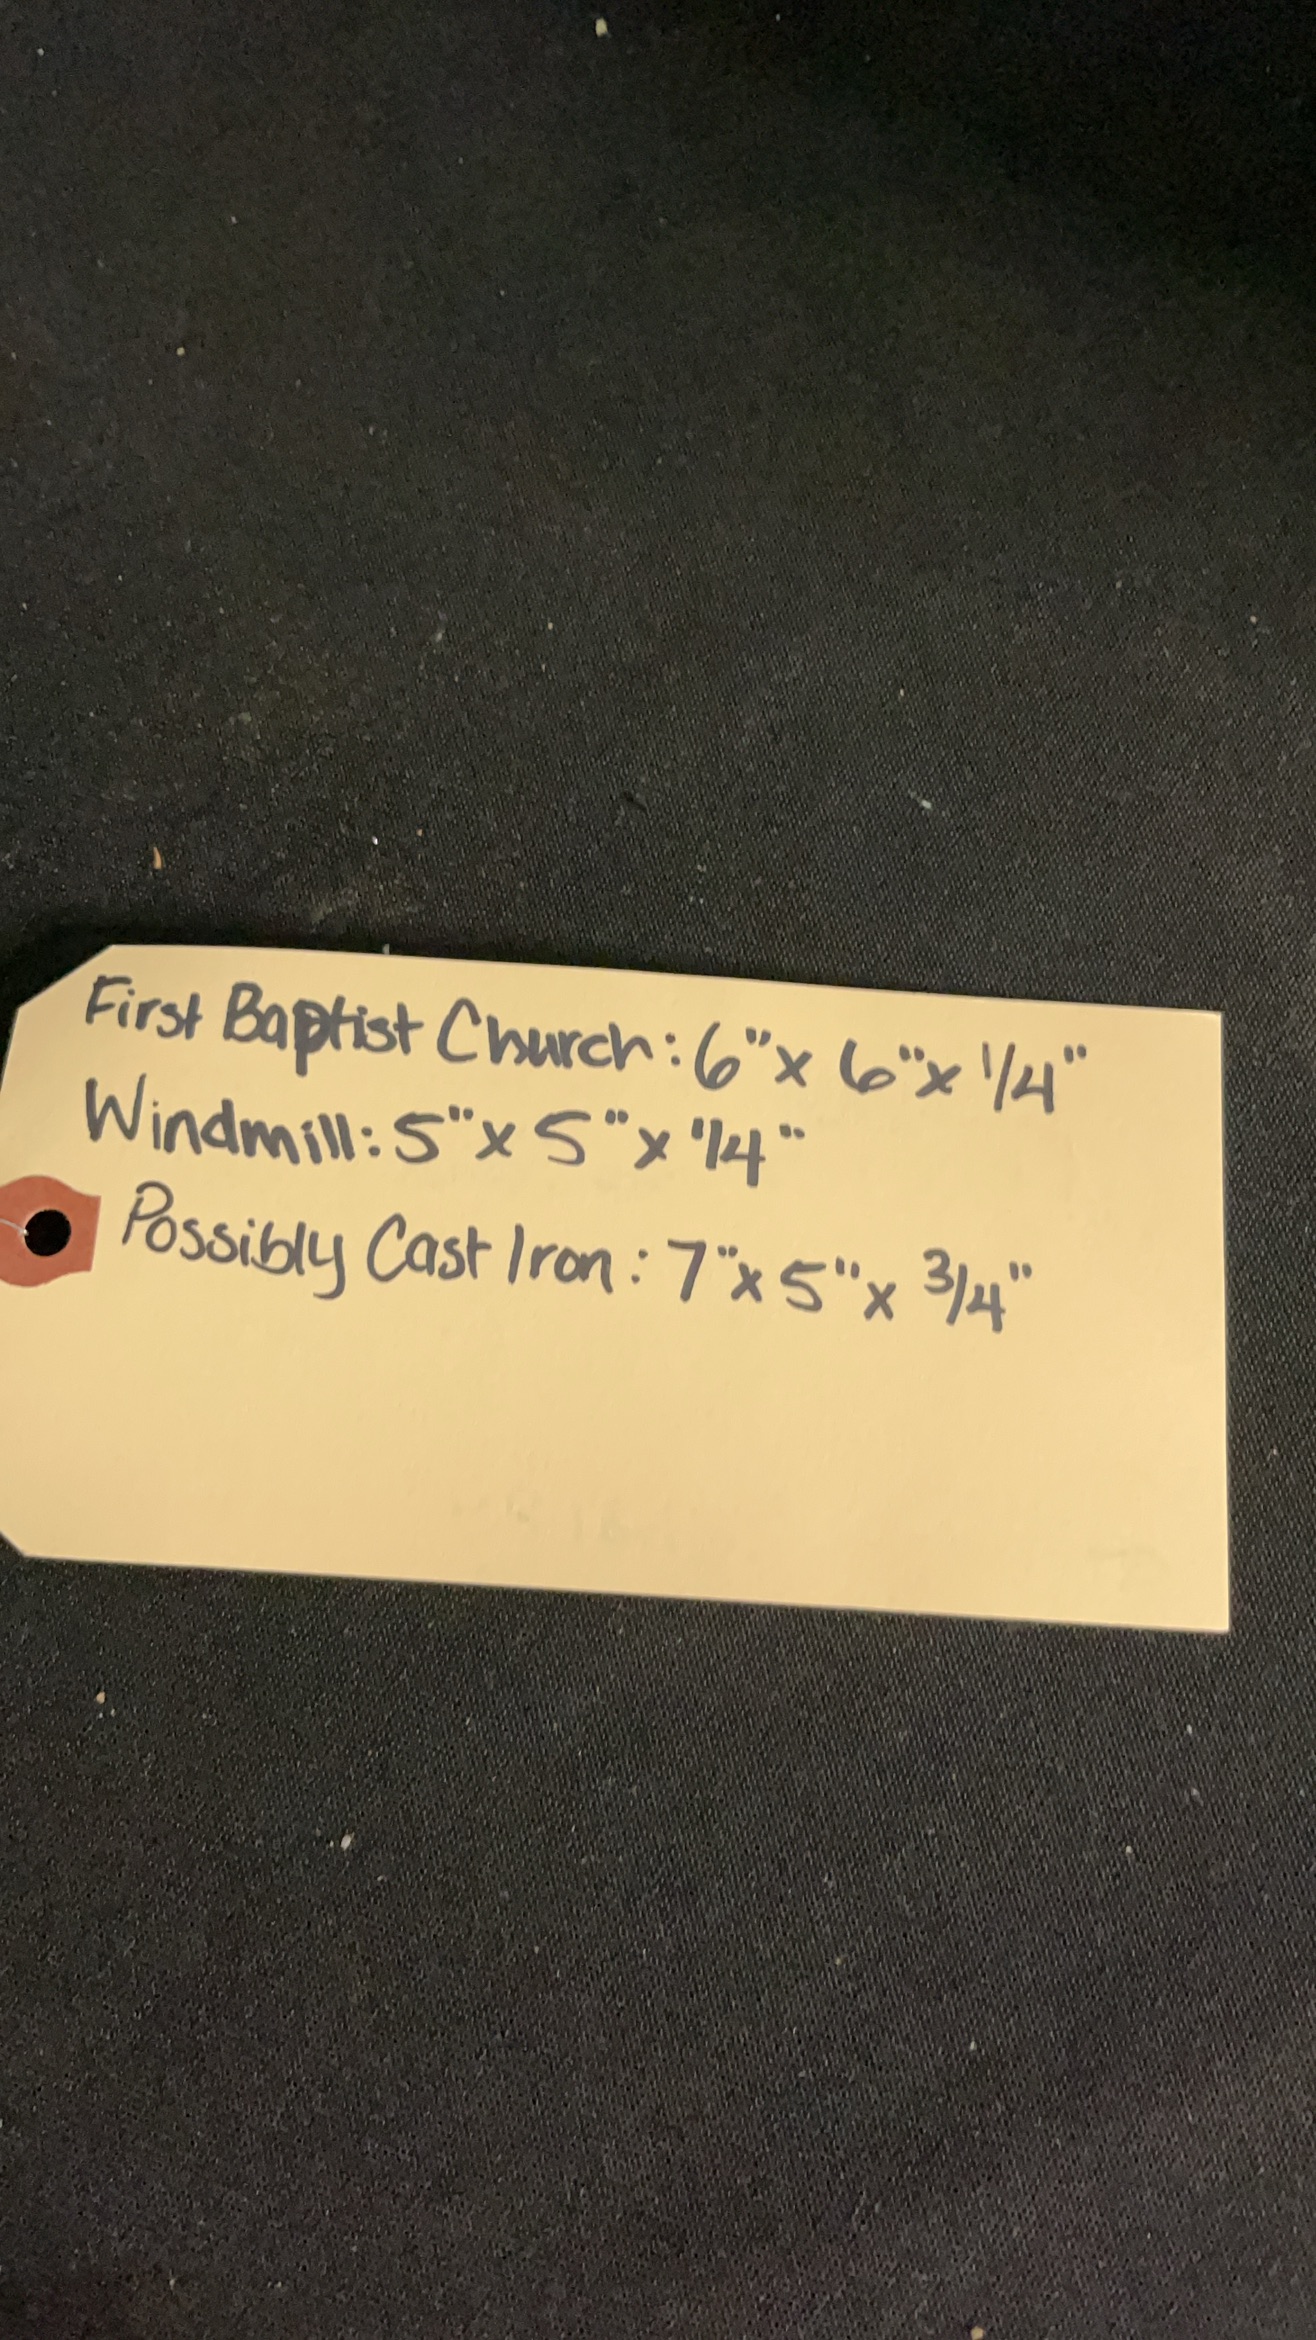 First Baptist Church: 6" x 6" x 1/4"
Windmill: 5" x 5" x 1/4"
Possibly Cast Iron: 7" x 5" x 3/4"